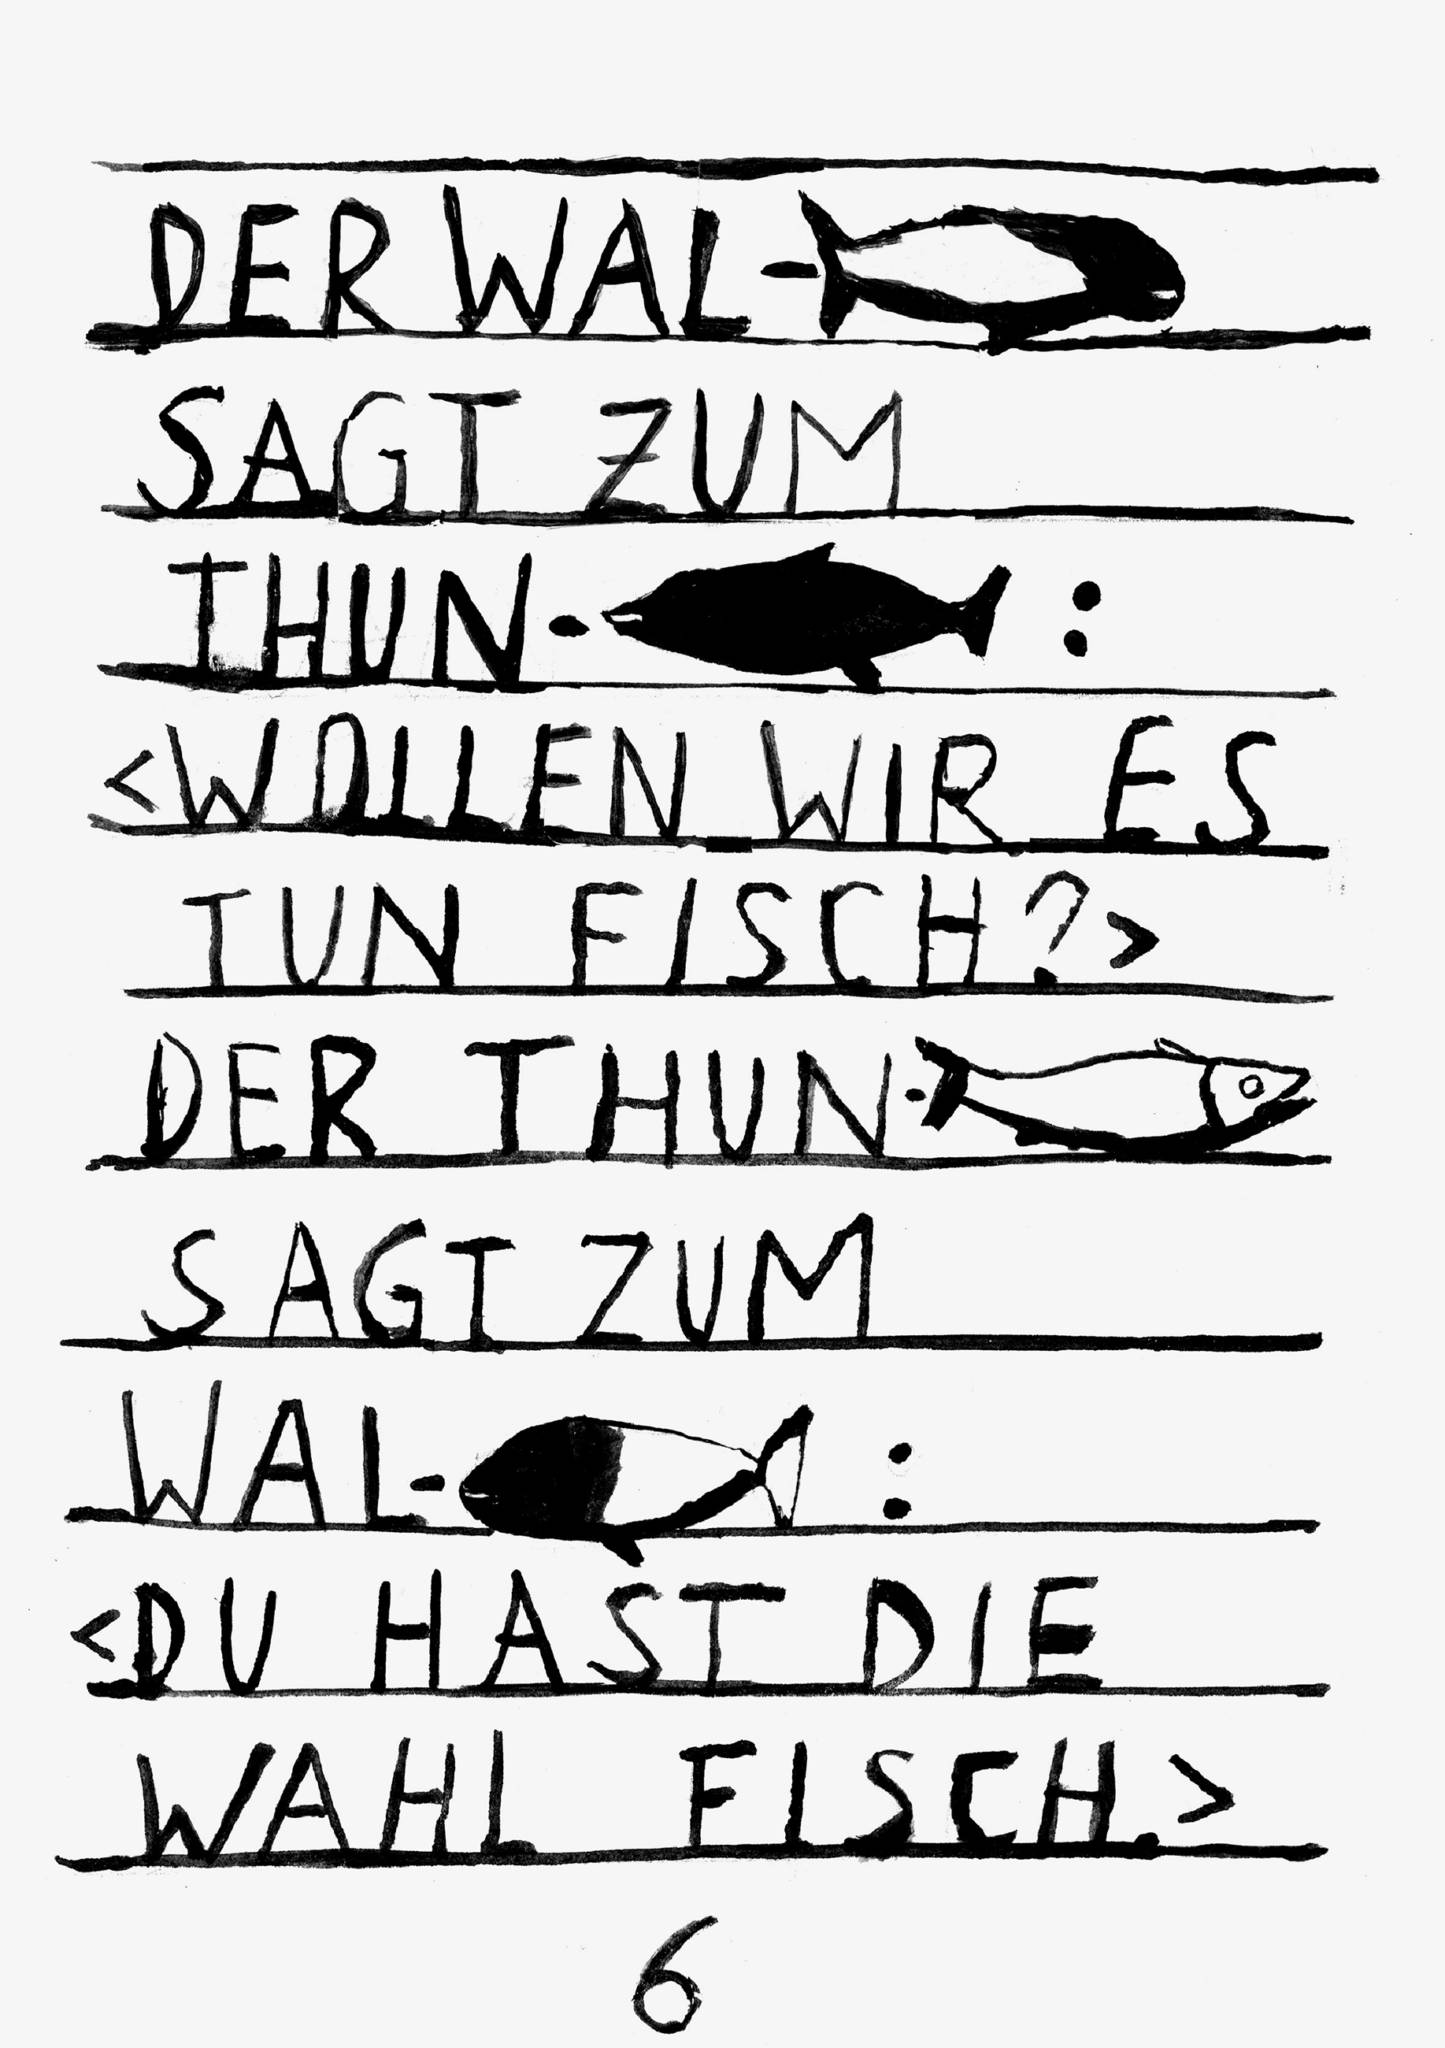 DER WAL-
SAGT ZUM
THUN- :
<WOLLEN WIR ES
TUN FISCH?>
DER THUN-
SAGT ZUM
WAL- :
<DU HAST DIE
WAHL FISCH.>
6